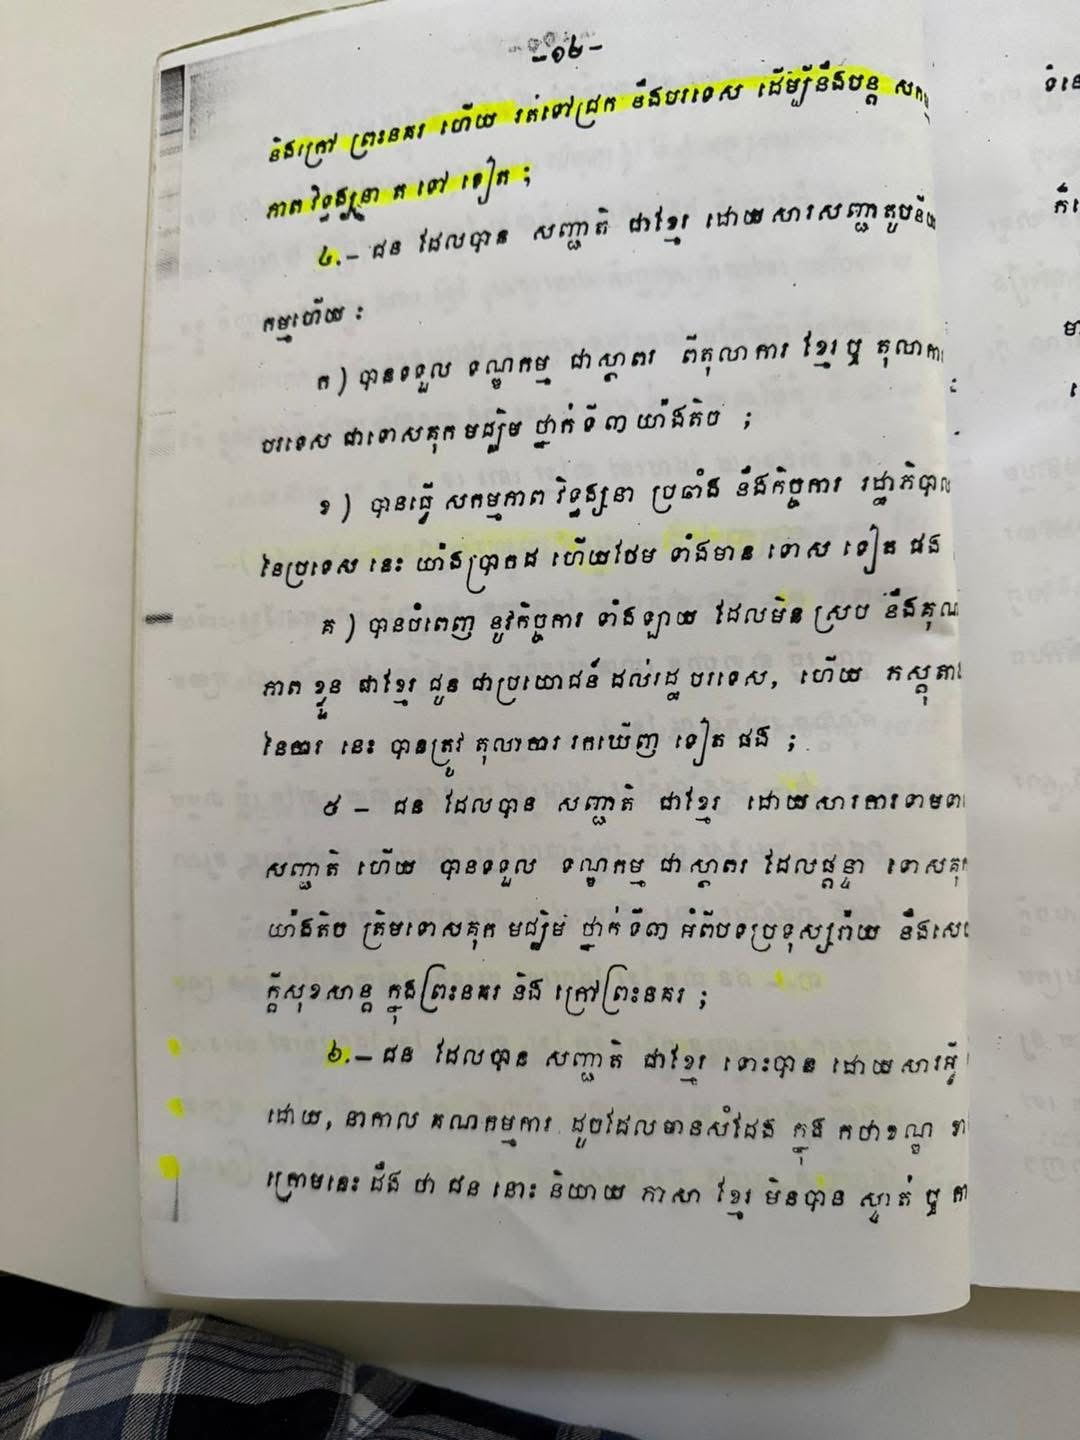 -១២-
និងក្រៅ ព្រះនគរ ហើយ រត់ទៅជ្រក នឹងបរទេស ដើម្បីនឹងបន្ត សកម្ម
ភាព វិទ្ធង្សនា ត ទៅ ទៀត ;
៤.- ជន ដែលបាន សញ្ជាតិ ជាខ្មែរ ដោយសារសញ្ជាតូបនីយ
កម្មហើយ :
ក ) បានទទួល ទណ្ឌកម្ម ជាស្ថាពរ ពីតុលាការ ខ្មែរ ឬ តុលាការ
បរទេស ជាទោសគុកមជ្ឈិម ថ្នាក់ទី៣ យ៉ាងតិច ;
ខ ) បានធ្វើ សកម្មភាព វិទ្ធង្សនា ប្រឆាំង នឹងកិច្ចការ រដ្ឋាភិបាល
នៃប្រទេស នេះ យ៉ាងប្រាកដ ហើយថែម ទាំងមាន ទោស ទៀត ផង
គ ) បានបំពេញ នូវកិច្ចការ ទាំងឡាយ ដែលមិន ស្រប នឹងគុណ
ភាព ខ្លួន ជាខ្មែរ ជូន ជាប្រយោជន៍ ដល់រដ្ឋ បរទេស, ហើយ ភស្តុតាង
នៃការ នេះ បានត្រូវ តុលាការ រកឃើញ ទៀត ផង ;
៥ - ជន ដែលបាន សញ្ជាតិ ជាខ្មែរ ដោយសារការទាមទារ
សញ្ជាតិ ហើយ បានទទួល ទណ្ឌកម្ម ជាស្ថាពរ ដែលផ្តន្ទា ទោសគុក
យ៉ាងតិច ត្រឹមទោសគុក មជ្ឈិម ថ្នាក់ទី៣ អំពីបទប្រទុស្សរ៉ាយ នឹងសេច
ក្តីសុខសាន្ត ក្នុងព្រះនគរ និង ក្រៅព្រះនគរ ;
៦.- ជន ដែលបាន សញ្ជាតិ ជាខ្មែរ ទោះបាន ដោយសារអ្វី
ដោយ, នាកាល គណកម្មការ ដូចដែលមានសំដែង ក្នុង កថាខណ្ឌ ខាង
ក្រោមនេះ ដឹង ថា ជន នោះ និយាយ ភាសា ខ្មែរ មិនបាន ស្ទាត់ ឬ